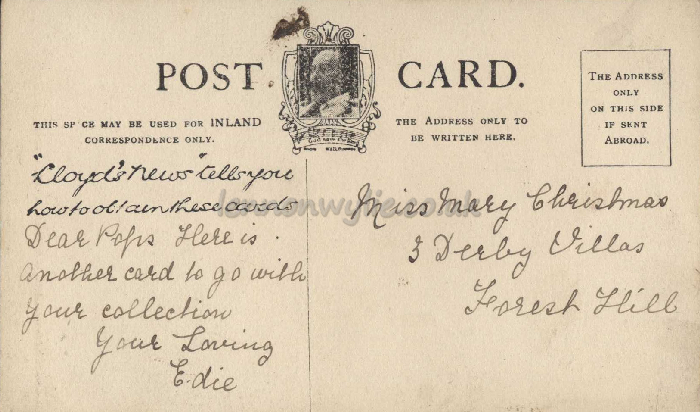 POST CARD.
THIS SPACE MAY BE USED FOR INLAND
CORRESPONDENCE ONLY.
THE ADDRESS ONLY TO
BE WRITTEN HERE.
THE ADDRESS
ONLY
ON THIS SIDE
IF SENT
ABROAD.
"Lloyd's News" tells you
how to obtain these cards
Dear Pops Here is
another card to go with
your collection
Your Loving
Edie
Miss Mary Christmas
3 Derby Villas
Forest Hill